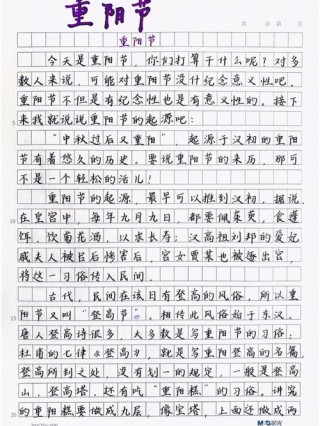 重阳节
重阳节
今天是重阳节，你们打算干什么呢？对多
数人来说，可能对重阳节没什纪念意义性吧。
重阳节不但是有纪念性也是有意义性的。接下
来我就说说重阳节的起源吧：
“中秋过后又重阳”，起源于汉初的重阳
节有着悠久的历史。要说重阳节的来历，那可
不是一个轻松的活儿！
重阳节的起源，最早可以推到汉初。据说，
在皇宫中，每年九月九日，都要佩茱萸，食蓬
饵，饮菊花酒，以求长寿；汉高祖刘邦的爱妃
戚夫人被吕后拷害后，宫女贾某也被逐出宫，
将这一习俗传入民间。
古代，民间在该日有登高的风俗，所以重
阳节又叫“登高节”。相传此风俗始于东汉。
唐人登高诗很多，大多数是写重阳节的习俗；
杜甫的七律《登高》，就是写重阳登高的名篇。
登高所到之处，没有划一的规定，一般是登高
山，登高塔，还有吃“重阳糕”的习俗。讲究
的重阳糕要做成九层，像宝塔，上面还做成两
M&G 晨光